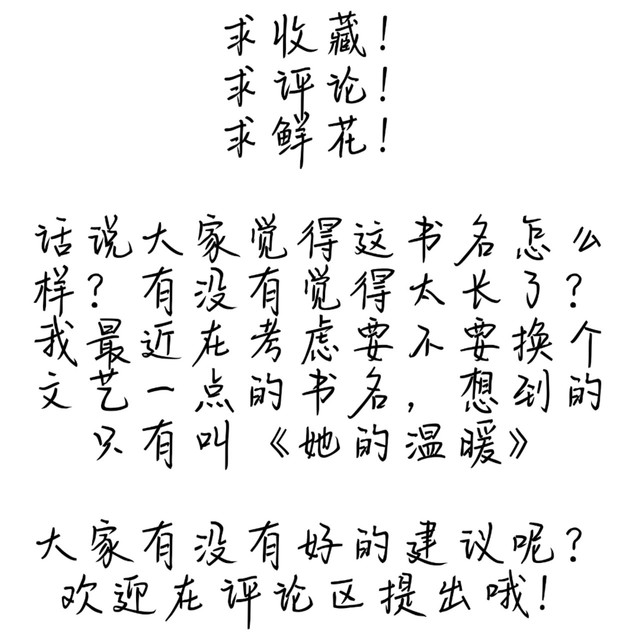 求收藏!
求评论!
求鲜花!
话说大家觉得这书名怎么
样?有没有觉得太长了?
我最近在考虑要不要换个
文艺一点的书名,想到的
只有叫《她的温暖》
大家有没有好的建议呢?
欢迎在评论区提出哦!